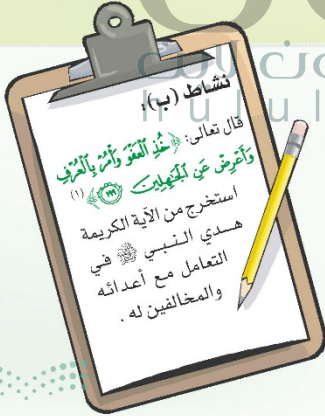 نشاط (ب):
قال تعالى: ﴿خُذِ ٱلۡعَفۡوَ وَأۡمُرۡ بِٱلۡعُرۡفِ
وَأَعۡرِضۡ عَنِ ٱلۡجَٰهِلِينَ ١٩٩﴾ (١)
استخرج من الآية الكريمة
هدي النبي ﷺ في
التعامل مع أعدائه
والمخالفين له .